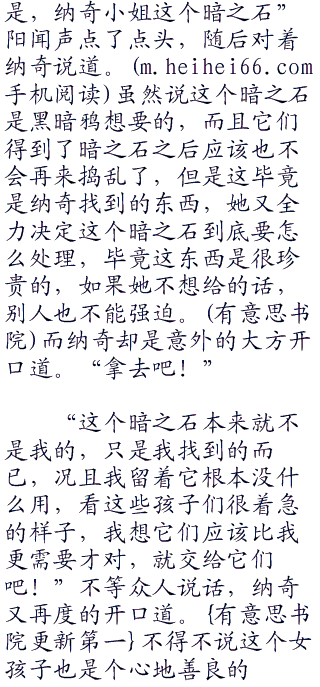 是，纳奇小姐这个暗之石”
阳闻声点了点头，随后对着
纳奇说道。(m.heihei66.com
手机阅读)虽然说这个暗之石
是黑暗鸦想要的，而且它们
得到了暗之石之后应该也不
会再来捣乱了，但是这毕竟
是纳奇找到的东西，她又全
力决定这个暗之石到底要怎
么处理，毕竟这东西是很珍
贵的，如果她不想给的话，
别人也不能强迫。(有意思书
院)而纳奇却是意外的大方开
口道。“拿去吧！”
“这个暗之石本来就不
是我的，只是我找到的而
已，况且我留着它根本没什
么用，看这些孩子们很着急
的样子，我想它们应该比我
更需要才对，就交给它们
吧！”不等众人说话，纳奇
又再度的开口道。{有意思书
院更新第一}不得不说这个女
孩子也是个心地善良的